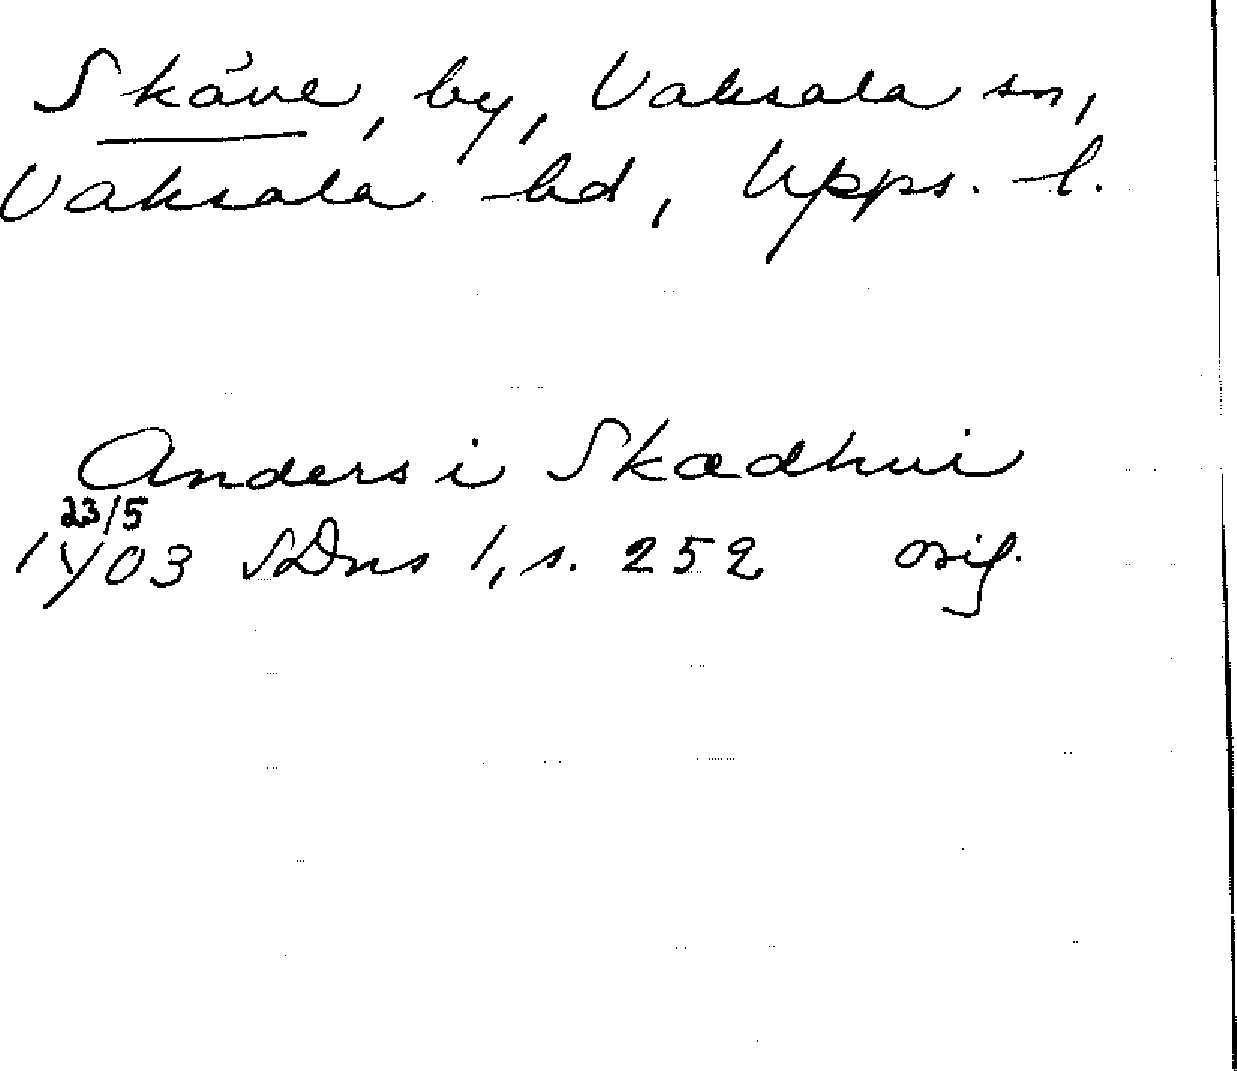 Skåve, by, Vaksala sn,
Vaksala hd, Upps. l.
Anders i Skædhwi
23/5
1403 SDns 1, s. 252 orig.